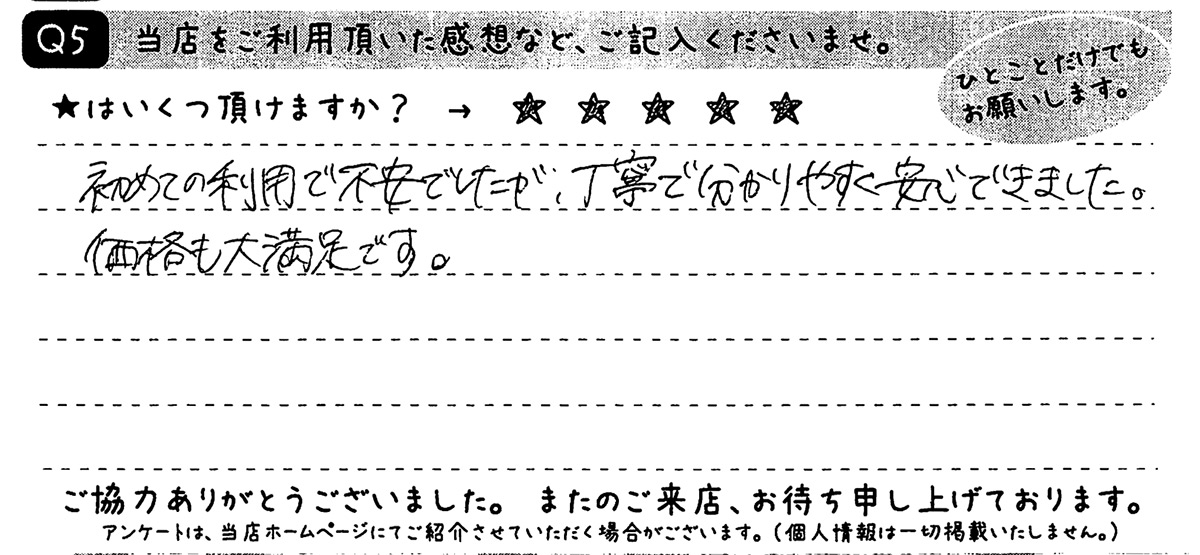 Q5 当店をご利用頂いた感想など、ご記入くださいませ。
ひとことだけでも
お願いします。
★はいくつ頂けますか？ → ★ ★ ★ ★ ★
初めての利用で不安でしたが、丁寧で分かりやすく安心できました。
価格も大満足です。
ご協力ありがとうございました。 またのご来店、お待ち申し上げております。
アンケートは、当店ホームページにてご紹介させていただく場合がございます。（個人情報は一切掲載いたしません。）